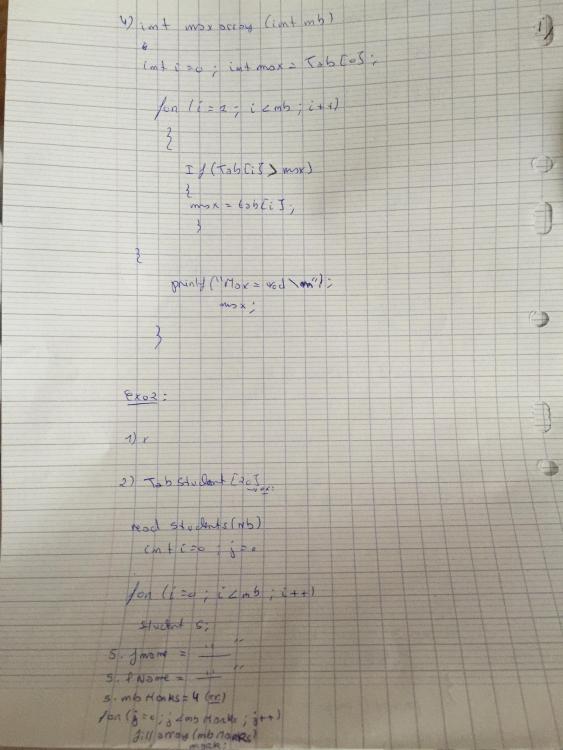 4) int max array (int mb)
int i=0 ; int max = Tab[0];
for (i=1 ; i<mb ; i++)
{
If (Tab[i] > max)
{
max = tab[i];
}
{
printf("Max = %d \n");
max;
}
Exo2 :
1) x
2) Tab Student [20]
read students(Nb)
int i=0 ; j=0
for (i=0 ; i<mb ; i++)
student s;
s. fname = __"__"
s. fName = __"__"
s. mb Marks = 4 (xx)
for (j=0; j<mb Marks ; j++)
fill array (mb Marks)
mark;